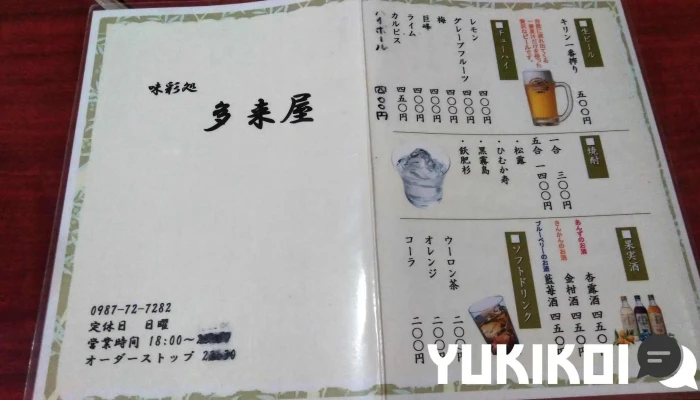 味彩処
多来屋
0987-72-7282
定休日 日曜
営業時間 18:00～
オーダーストップ
■生ビール
キリン一番搾り 五〇〇円
■チューハイ
レモン 四〇〇円
グレープフルーツ 四〇〇円
梅 四〇〇円
巨峰 四〇〇円
ライム 四〇〇円
カルピス 四五〇円
ハイボール 四〇〇円
■焼酎
一合 三〇〇円
五合 一四〇〇円
・松露
・ひむか寿
・黒霧島
・飫肥杉
■果実酒
あんずのお酒
杏露酒 四五〇
きんかんのお酒
金柑酒 四五〇
ブルーベリーのお酒
藍苺酒 四五〇円
■ソフトドリンク
ウーロン茶 二〇〇
オレンジ
コーラ 二〇〇円
YUKIKOI